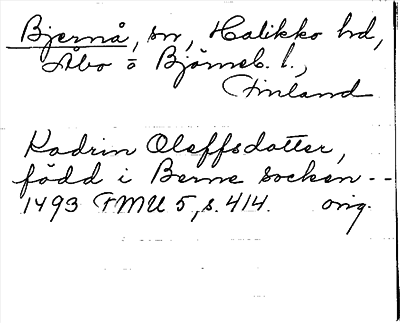 Bjernå, sn, Halikko hd,
Åbo o Björneb. l.,
Finland
Kadrin Oleffsdotter,
född i Berne socken --
1493 FMU 5, s. 414. orig.